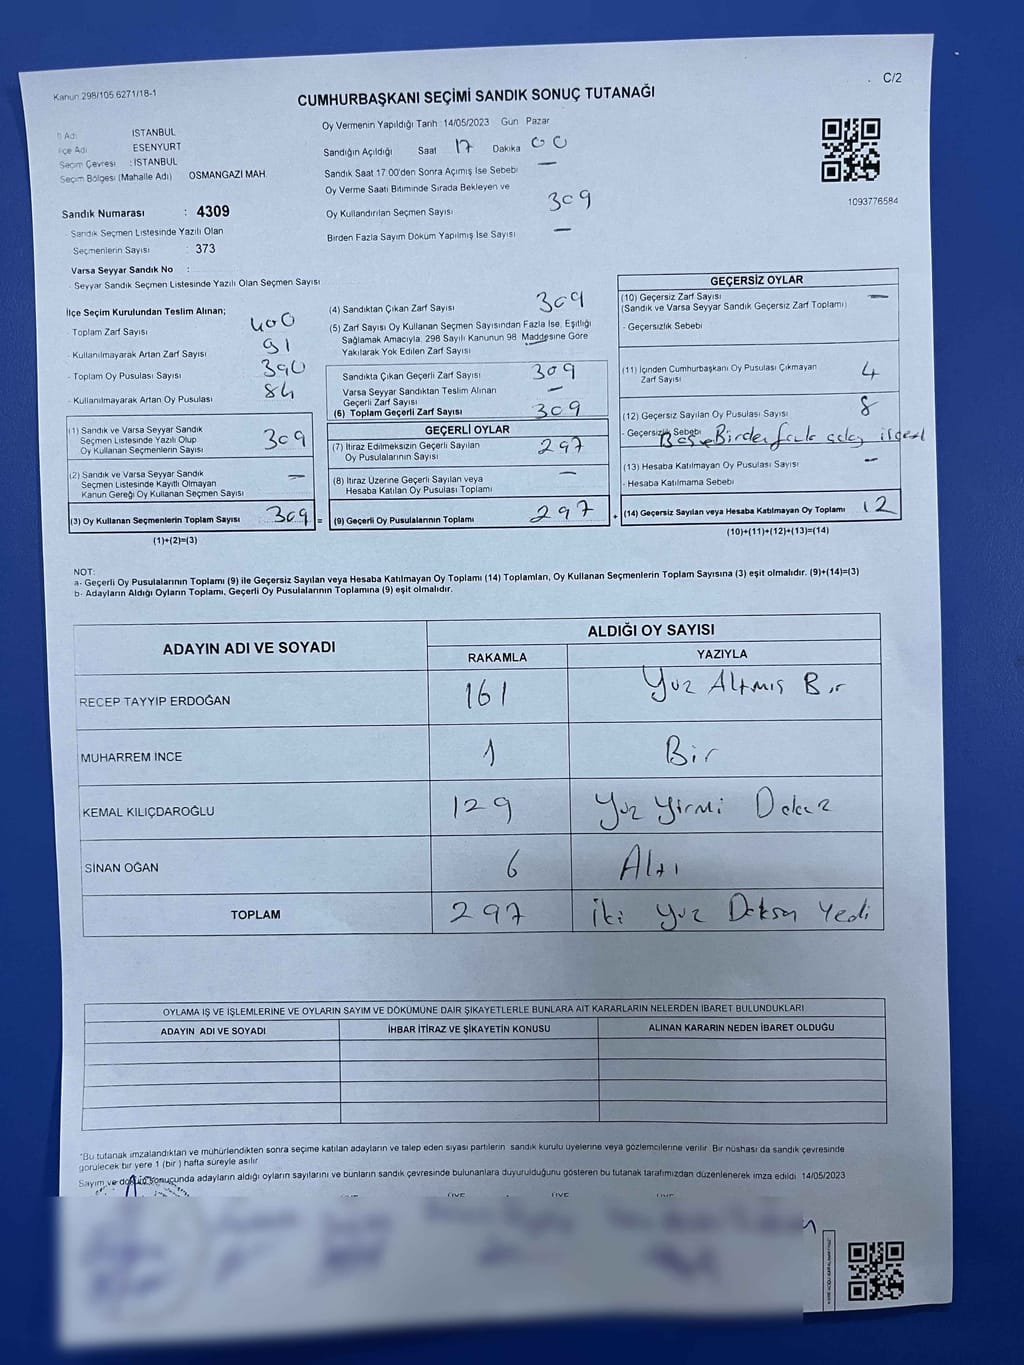 Kanun 298/105.6271/18-1
C/2
CUMHURBAŞKANI SEÇİMİ SANDIK SONUÇ TUTANAĞI
İl Adı İSTANBUL
İlçe Adı ESENYURT
Seçim Çevresi : İSTANBUL
Seçim Bölgesi (Mahalle Adı) OSMANGAZİ MAH.
Sandık Numarası : 4309
- Sandık Seçmen Listesinde Yazılı Olan
Seçmenlerin Sayısı : 373
Varsa Seyyar Sandık No :
- Seyyar Sandık Seçmen Listesinde Yazılı Olan Seçmen Sayısı
Oy Vermenin Yapıldığı Tarih : 14/05/2023 Gün Pazar
Sandığın Açıldığı Saat 17 Dakika 00
Sandık Saat 17:00'den Sonra Açımış İse Sebebi —
Oy Verme Saati Bitiminde Sırada Bekleyen ve
Oy Kullandırılan Seçmen Sayısı 309
Birden Fazla Sayım Döküm Yapılmış İse Sayısı —
1093776584
İlçe Seçim Kurulundan Teslim Alınan;
- Toplam Zarf Sayısı 400
- Kullanılmayarak Artan Zarf Sayısı 91
- Toplam Oy Pusulası Sayısı 390
- Kullanılmayarak Artan Oy Pusulası 84
(1) Sandık ve Varsa Seyyar Sandık
Seçmen Listesinde Yazılı Olup
Oy Kullanan Seçmenlerin Sayısı 309
(2) Sandık ve Varsa Seyyar Sandık
Seçmen Listesinde Kayıtlı Olmayan
Kanun Gereği Oy Kullanan Seçmen Sayısı —
(3) Oy Kullanan Seçmenlerin Toplam Sayısı 309 =
(1)+(2)=(3)
(4) Sandıktan Çıkan Zarf Sayısı 309
(5) Zarf Sayısı Oy Kullanan Seçmen Sayısından Fazla İse, Eşitliği
Sağlamak Amacıyla, 298 Sayılı Kanunun 98. Maddesine Göre
Yakılarak Yok Edilen Zarf Sayısı —
Sandıkta Çıkan Geçerli Zarf Sayısı 309
Varsa Seyyar Sandıktan Teslim Alınan
Geçerli Zarf Sayısı —
(6) Toplam Geçerli Zarf Sayısı 309
GEÇERLİ OYLAR
(7) İtiraz Edilmeksizin Geçerli Sayılan
Oy Pusulalarının Sayısı 297
(8) İtiraz Üzerine Geçerli Sayılan veya
Hesaba Katılan Oy Pusulası Toplamı —
(9) Geçerli Oy Pusulalarının Toplamı 297 +
GEÇERSİZ OYLAR
(10) Geçersiz Zarf Sayısı —
(Sandık ve Varsa Seyyar Sandık Geçersiz Zarf Toplamı)
- Geçersizlik Sebebi
(11) İçinden Cumhurbaşkanı Oy Pusulası Çıkmayan
Zarf Sayısı 4
(12) Geçersiz Sayılan Oy Pusulası Sayısı 8
- Geçersizlik Sebebi Boş ve Birden fazla
(13) Hesaba Katılmayan Oy Pusulası Sayısı —
- Hesaba Katılmama Sebebi
(14) Geçersiz Sayılan veya Hesaba Katılmayan Oy Toplamı 12
(10)+(11)+(12)+(13)=(14)
NOT:
a- Geçerli Oy Pusulalarının Toplamı (9) ile Geçersiz Sayılan veya Hesaba Katılmayan Oy Toplamı (14) Toplamları, Oy Kullanan Seçmenlerin Toplam Sayısına (3) eşit olmalıdır. (9)+(14)=(3)
b- Adayların Aldığı Oyların Toplamı, Geçerli Oy Pusulalarının Toplamına (9) eşit olmalıdır.
ADAYIN ADI VE SOYADI
ALDIĞI OY SAYISI
RAKAMLA YAZIYLA
RECEP TAYYİP ERDOĞAN 161 Yüz Altmış Bir
MUHARREM İNCE 1 Bir
KEMAL KILIÇDAROĞLU 129 Yüz Yirmi Dokuz
SİNAN OĞAN 6 Altı
TOPLAM 297 İki Yüz Doksan Yedi
OYLAMA İŞ VE İŞLEMLERİNE VE OYLARIN SAYIM VE DÖKÜMÜNE DAİR ŞİKAYETLERLE BUNLARA AİT KARARLARIN NELERDEN İBARET BULUNDUKLARI
ADAYIN ADI VE SOYADI İHBAR İTİRAZ VE ŞİKAYETİN KONUSU ALINAN KARARIN NEDEN İBARET OLDUĞU
*Bu tutanak imzalandıktan ve mühürlendikten sonra seçime katılan adayların ve talep eden siyasi partilerin sandık kurulu üyelerine veya gözlemcilerine verilir. Bir nüshası da sandık çevresinde
görülecek bir yere 1 (bir) hafta süreyle asılır
Sayım ve döküm sonucunda adayların aldığı oyların sayılarını ve bunların sandık çevresinde bulunanlara duyurulduğunu gösteren bu tutanak tarafımızdan düzenlenerek imza edildi. 14/05/2023
ÜYE ÜYE